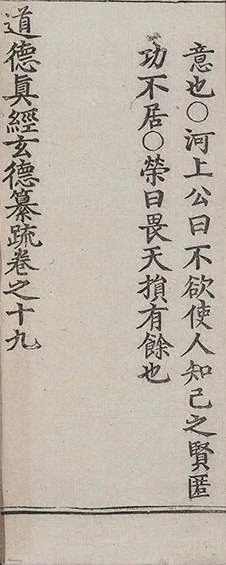 意也○河上公曰不欲使人知己之賢匿
功不居○榮曰畏天損有餘也
道德眞經玄德纂疏卷之十九